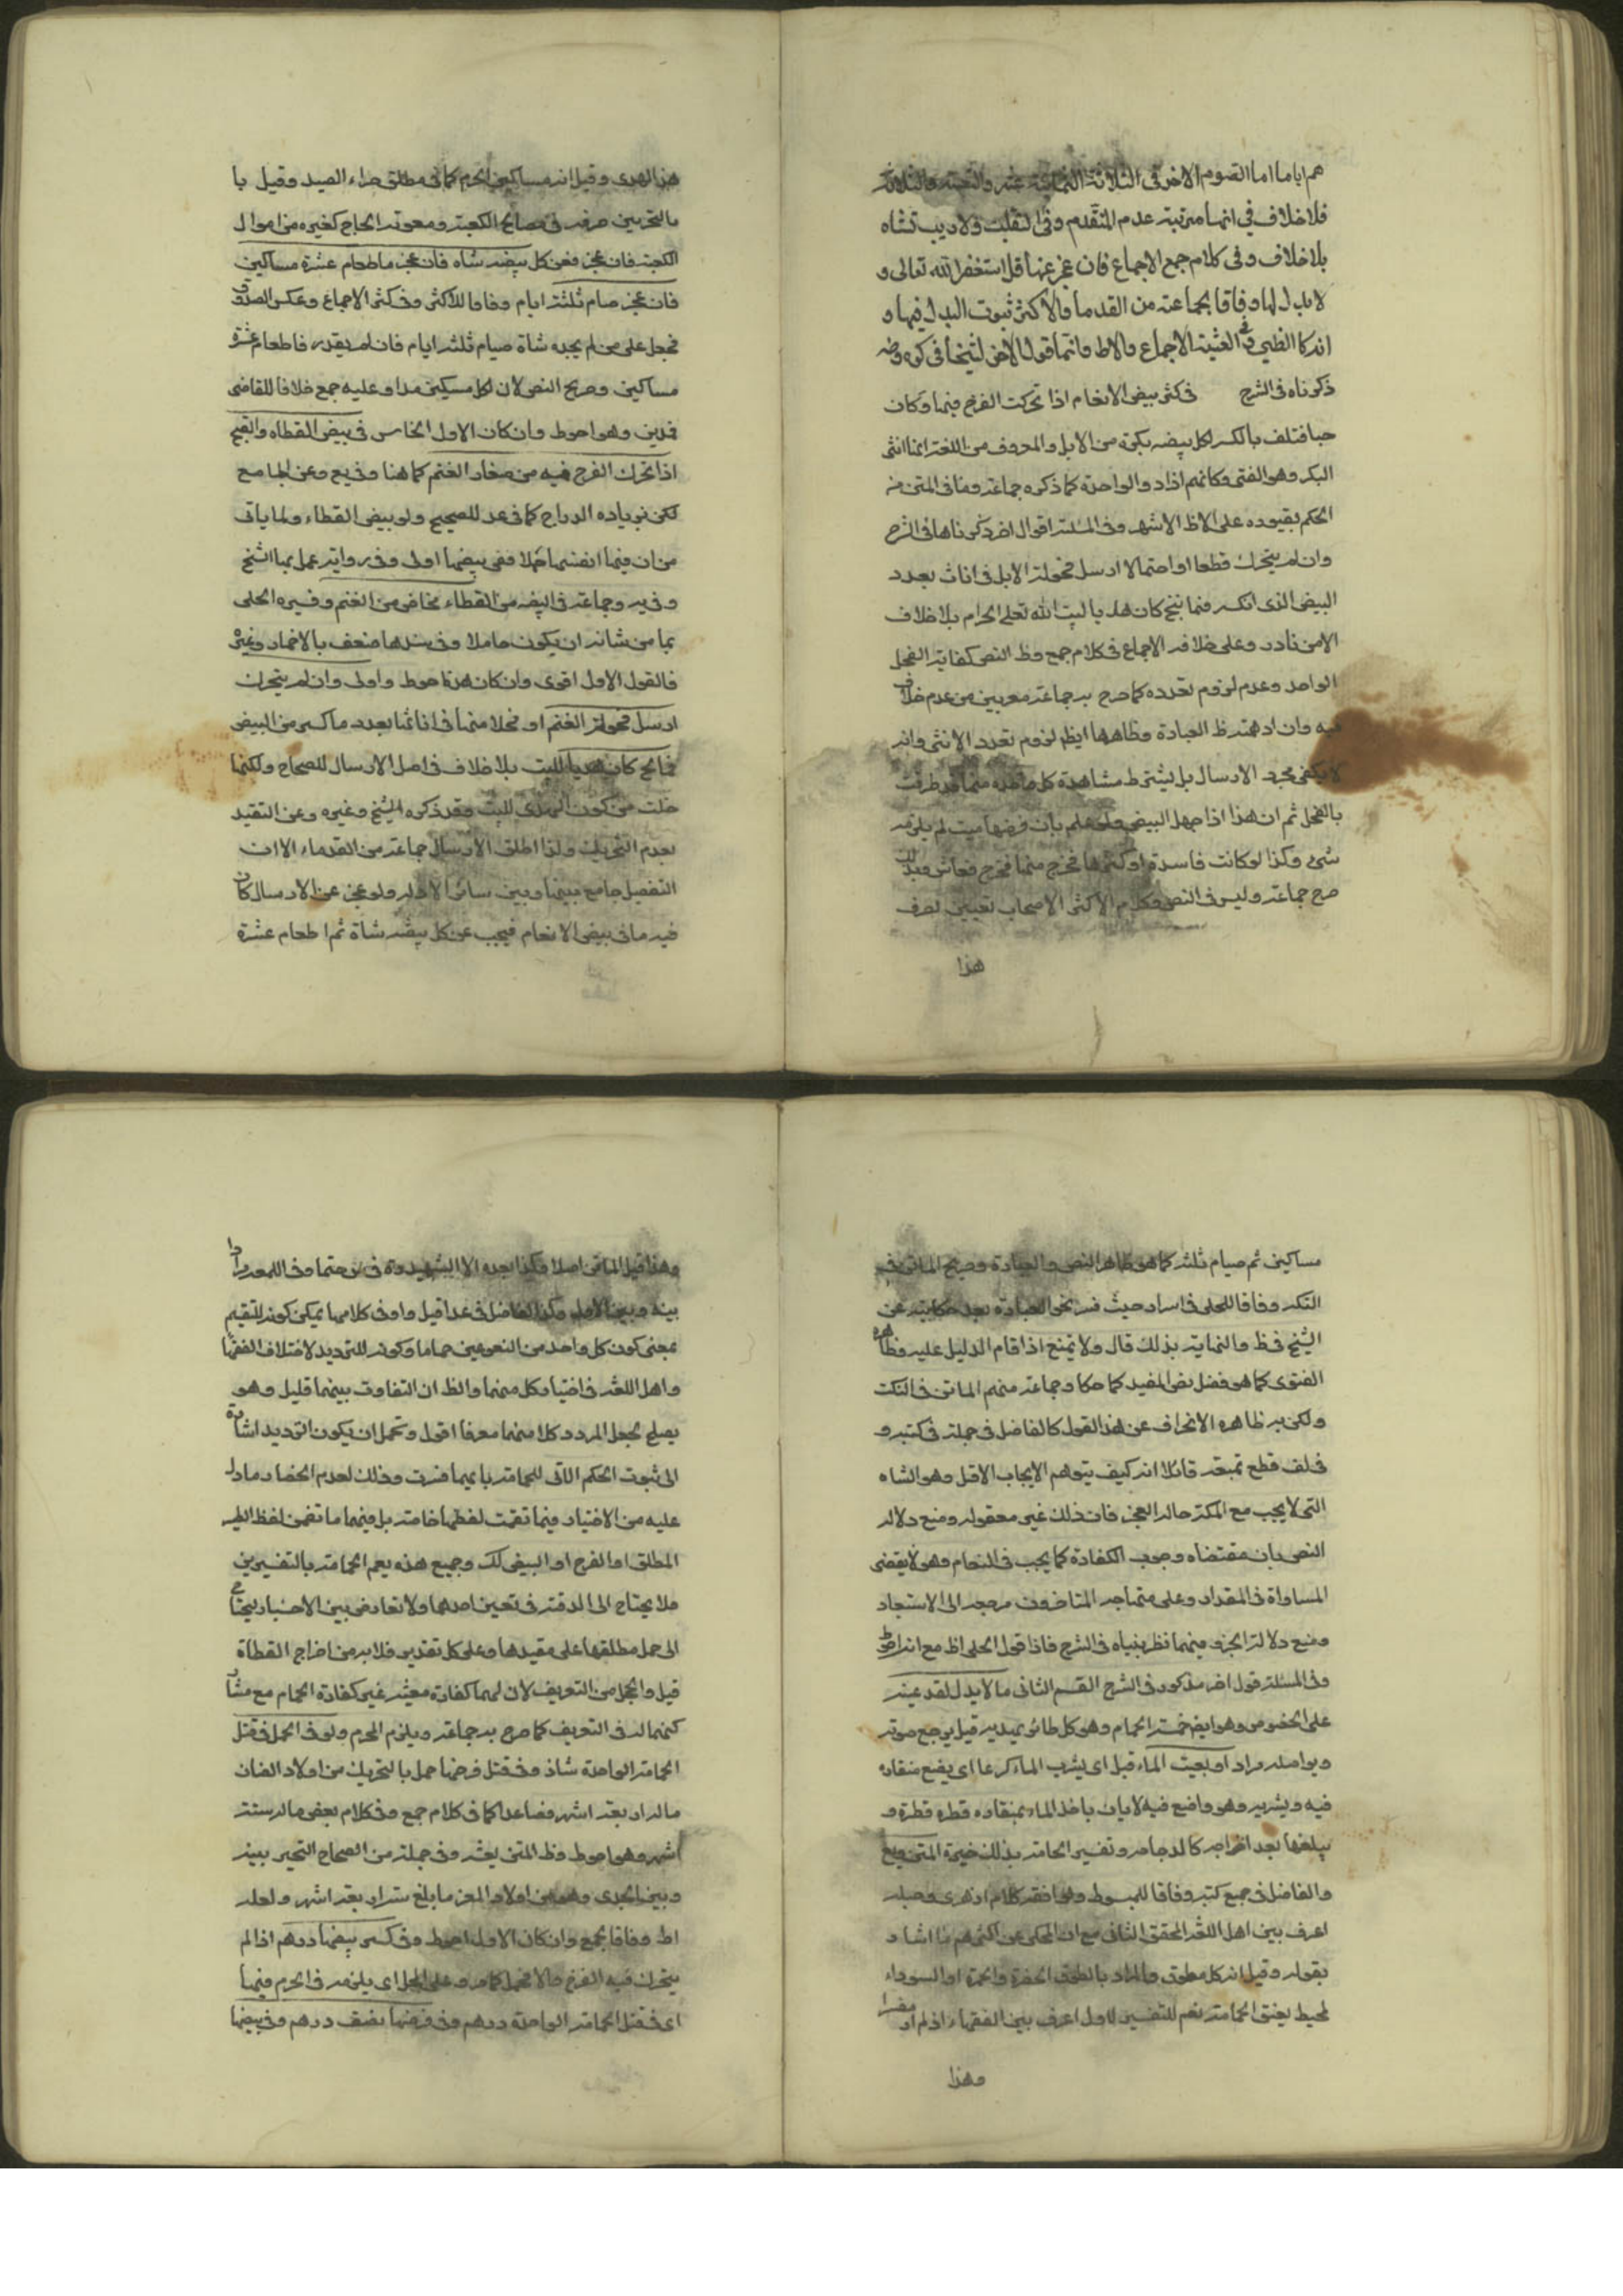 هم اياما اما الصوم الاخر في الثلاثة الثمانية عشر والتسعة والثلاثة
فلا خلاف في انها مرتبة عدم المتقدم وفي الثعلب ولا ريب شاة
بلا خلاف وفي كلام جمع الاجماع فان عجز عنها قل استغفر الله تعالى و
لا بدل لها وفاقا لجماعة من القدماء والاكثر ثبوت البدل فيها و
انه كالظبي في الغنية الاجماع والاظ وانها قولا لاخر لشيخنا في كره وضه
ذكرناه في الشرح في كسر بيض الانعام اذا تحركت الفرخ فيها وكان
حيا فتلف بالكسر لكل بيضه بكرة من الابل والمعروف من اللغة انها انثى
البكر وهو الفتى وكانهم ارادوا الواحدة كما ذكره جماعة وما في المتن من
الحكم بقيوده على الاظ الاشهر وفي المسئلة اقوال اخر ذكرناها في الشرح
وان لم يتحرك قطعا او احتمالا ارسل فحولة الابل في اناث بعدد
البيض الذي انكسر فما نتج كان هديا لبيت الله تعالى الحرام بلا خلاف
الا من نادر وعلى خلافه الاجماع في كلام جمع وظ النص كفاية الفحل
الواحد وعدم لزوم تعدده كما صرح به جماعة معربين من عدم خلاف
فيه وان اوهمته ظ العبارة وظاهرها ايظ لزوم تعدد الانثى وانه
لا يكفي مجرد الارسال بل يشترط مشاهدة كل واحدة منها قد طرقت
بالفحل ثم ان هذا اذا جهل البيض ولو علم بان فرضها ميت لم يلزمه
شئ وكذا لو كانت فاسدة او كسرها فخرج منها فرخ فعاش وبذلك
صرح جماعة وليس في النص وكلام الاكثر الاصحاب تعيين لصرف
هذا
هذا الهدى وقيل انه مساكين الحرم كما في مطلق جزاء الصيد وقيل با
بالتخيير بين صرفه في مصالح الكعبة ومعونة الحاج كغيره من اموال
الكعبة فان عجز فعن كل بيضه شاه فان عجز فاطعام عشرة مساكين
فان عجز صام ثلثة ايام وفاقا للاكثر وفي كثر الاجماع وعكس الصدوق
فجعل على من لم يجد شاة صيام ثلثة ايام فان لم يقدر فاطعام عشرة
مساكين وصريح النص لان لكل مسكين مدا وعليه جمع خلافا للقاضى
فمدين وهو احوط وان كان الاول الخامس في بيض القطاه والقبج
اذا تحرك الفرخ فيه من صغار الغنم كما هنا وفي يع وعن الجامع
لكن بزياده الدراج كما في عد للصحيح ولو بيض القطاء ولما ياتي
من ان فيها انفسها حملا ففي بيضها اولى وفي رواية عمل بها الشيخ
وفي يه وجماعة في البيضه من القطاء مخاض من الغنم وفسره الحلى
بما من شانه ان يكون حاملا وفي سندها ضعف بالاضمار وغيره
فالقول الاول اقوى وان كان هذا احوط واولى وان لم يتحرك
ارسل فحولة الغنم او فحلا منها في اناثها بعدد ما كسر من البيض
فما نتج كان هديا للبيت بلا خلاف في اصل الارسال للصحاح ولكنها
خلت من كون الهدى للبيت وقد ذكره الشيخ وغيره وعن التقيد
بعدم التحريك ولذا اطلق الارسال جماعة من القدماء الا ان
التفصيل جامع بينها وبين سائر الادلة ولو عجز عن الارسال كان
فيه ما في بيض الانعام فيجب عن كل بيضه شاة ثم اطعام عشرة
مساكين ثم صيام ثلثة كما هو ظاهر النص والعبارة وصريح الماتن في
النكت وفاقا للحلى في اسراد حيث فسر نحو العبارة بعد حكايته عن
الشيخ في ظ والنهايه بذلك قال ولا يمنع اذا قام الدليل عليه وظاهره
الفتوى كما هو فضل نص المفيد كما حكا وجماعة منهم الماتن في النكت
ولكن يه ظاهره الانحراف عن هذا القول كالفاضل في جملة في كتبه و
في لف قطع تمبعه قائلا انه كيف يتوهم الايجاب الاقل وهو الشاه
التي لا يجب مع المكنة حالة العجز فان ذلك غير معقول ومنع دلالة
النص بان مقتضاه وجوب الكفارة كما يجب في النعام وهو لا يقضى
المساواة في المقدار وعلى متهاجه المتاخرون مرجعه الى الاستبعاد
ومنع دلالة الجزء وفيهما نظر بنياه في الشرح فاذا قول الحلى اظ مع انه احوط
وفي المسئلة قول اخر مذكور في الشرح القسم الثانى ما لا بدل لفديته
على الخصوص وهو ايض خمسة الحمام وهو كل طائر يهدير قيل يرجع صوته
ويواصله مرارا او يعبّ الماء قيل اي يشرب الماء كرعا اي يضع منقاره
فيه ويشربه وهو واضع فيه لا بان ياخذ الماء بمنقاره قطرة قطرة و
يبلعها بعد اخراجه كالدجاجه وتفسير الحامة بذلك خيرة المتن ويع
والفاضل في جميع كتبه وفاقا للمبسوط ولموافقه كلام ازهرى وجعله
اعرف بين اهل اللغة المحقق الثاني مع ان المحكى عن اكثرهم ما اشار
بقوله وقيل انه كل مطوق والمراد بالطوق الخضرة والحمرة او السوداء
لمحيط بعنق الحمامة نعم للتفسير الاول اعرف بين الفقهاء اذ لم ار مفسرا
وهذا
وهذا قيل الماتن اصلا وكذا بعده الا الشهيد وة في س حتما وفي اللمعة مرددا
بينه وبين الاول وكذا الفاضل في عد اقيل واو في كلامها يمكن كونه للتقيم
بمعنى كون كل واحد من النوعين حماما وكونه للترديد لاختلاف الفقها
واهل اللغة في اختيار كل منهما والظ ان التفاوت بينهما قليل وهو
يصلح لجعل المردد كلا منهما معرفا اقول وتحمل ان يكون الترديد اشارة
الى ثبوت الحكم الاتى للحامة بايهما فسرت وذلك لعدم انحصار ما دل
عليه من الاخبار فيما تضمنت لفظها خاصة بل فيها ما تضمن لفظ الطير
المطلق او الفرخ او البيض كك وجميع هذه يعم الحمامة بالتفسيرين
فلا يحتاج الى الدقة في تعيين احدهما ولا تعارض بين الاخبار ليحتاج
الى حمل مطلقها على مقيدها وعلى كل تقدير فلا بد من اخراج القطاة
قيل والحجل من التعريف لان لهما كفارة معينة غير كفارة الحمام مع مشا
كتهما له في التعريف كما صرح به جماعة ويلزم المحرم ولو في الحل في قتل
الحمامة الواحدة شاة وفي قتل فرخها حمل بالتحريك من اولاد الضان
ماله اربعة اشهر فصاعدا كما في كلام جمع وفي كلام بعض ماله ستة
اشهر وهو احوط وظ المتن يعينه وفي جملة من الصحاح التخيير بينه
وبين الجدى وهو من اولاد المعز ما بلغ سنة اربعة اشهر ولعله
اظ وفاقا لجمع وان كان الاول احوط وفي كسر بيضها درهم اذا لم
يتحرك فيه الفرخ والا فحمل كما مر وعلى المحل اي يلزمه في الحرم فيها
اى في قتل الحمامة الواحدة درهم وفي فرخها نصف درهم وفي بيضها